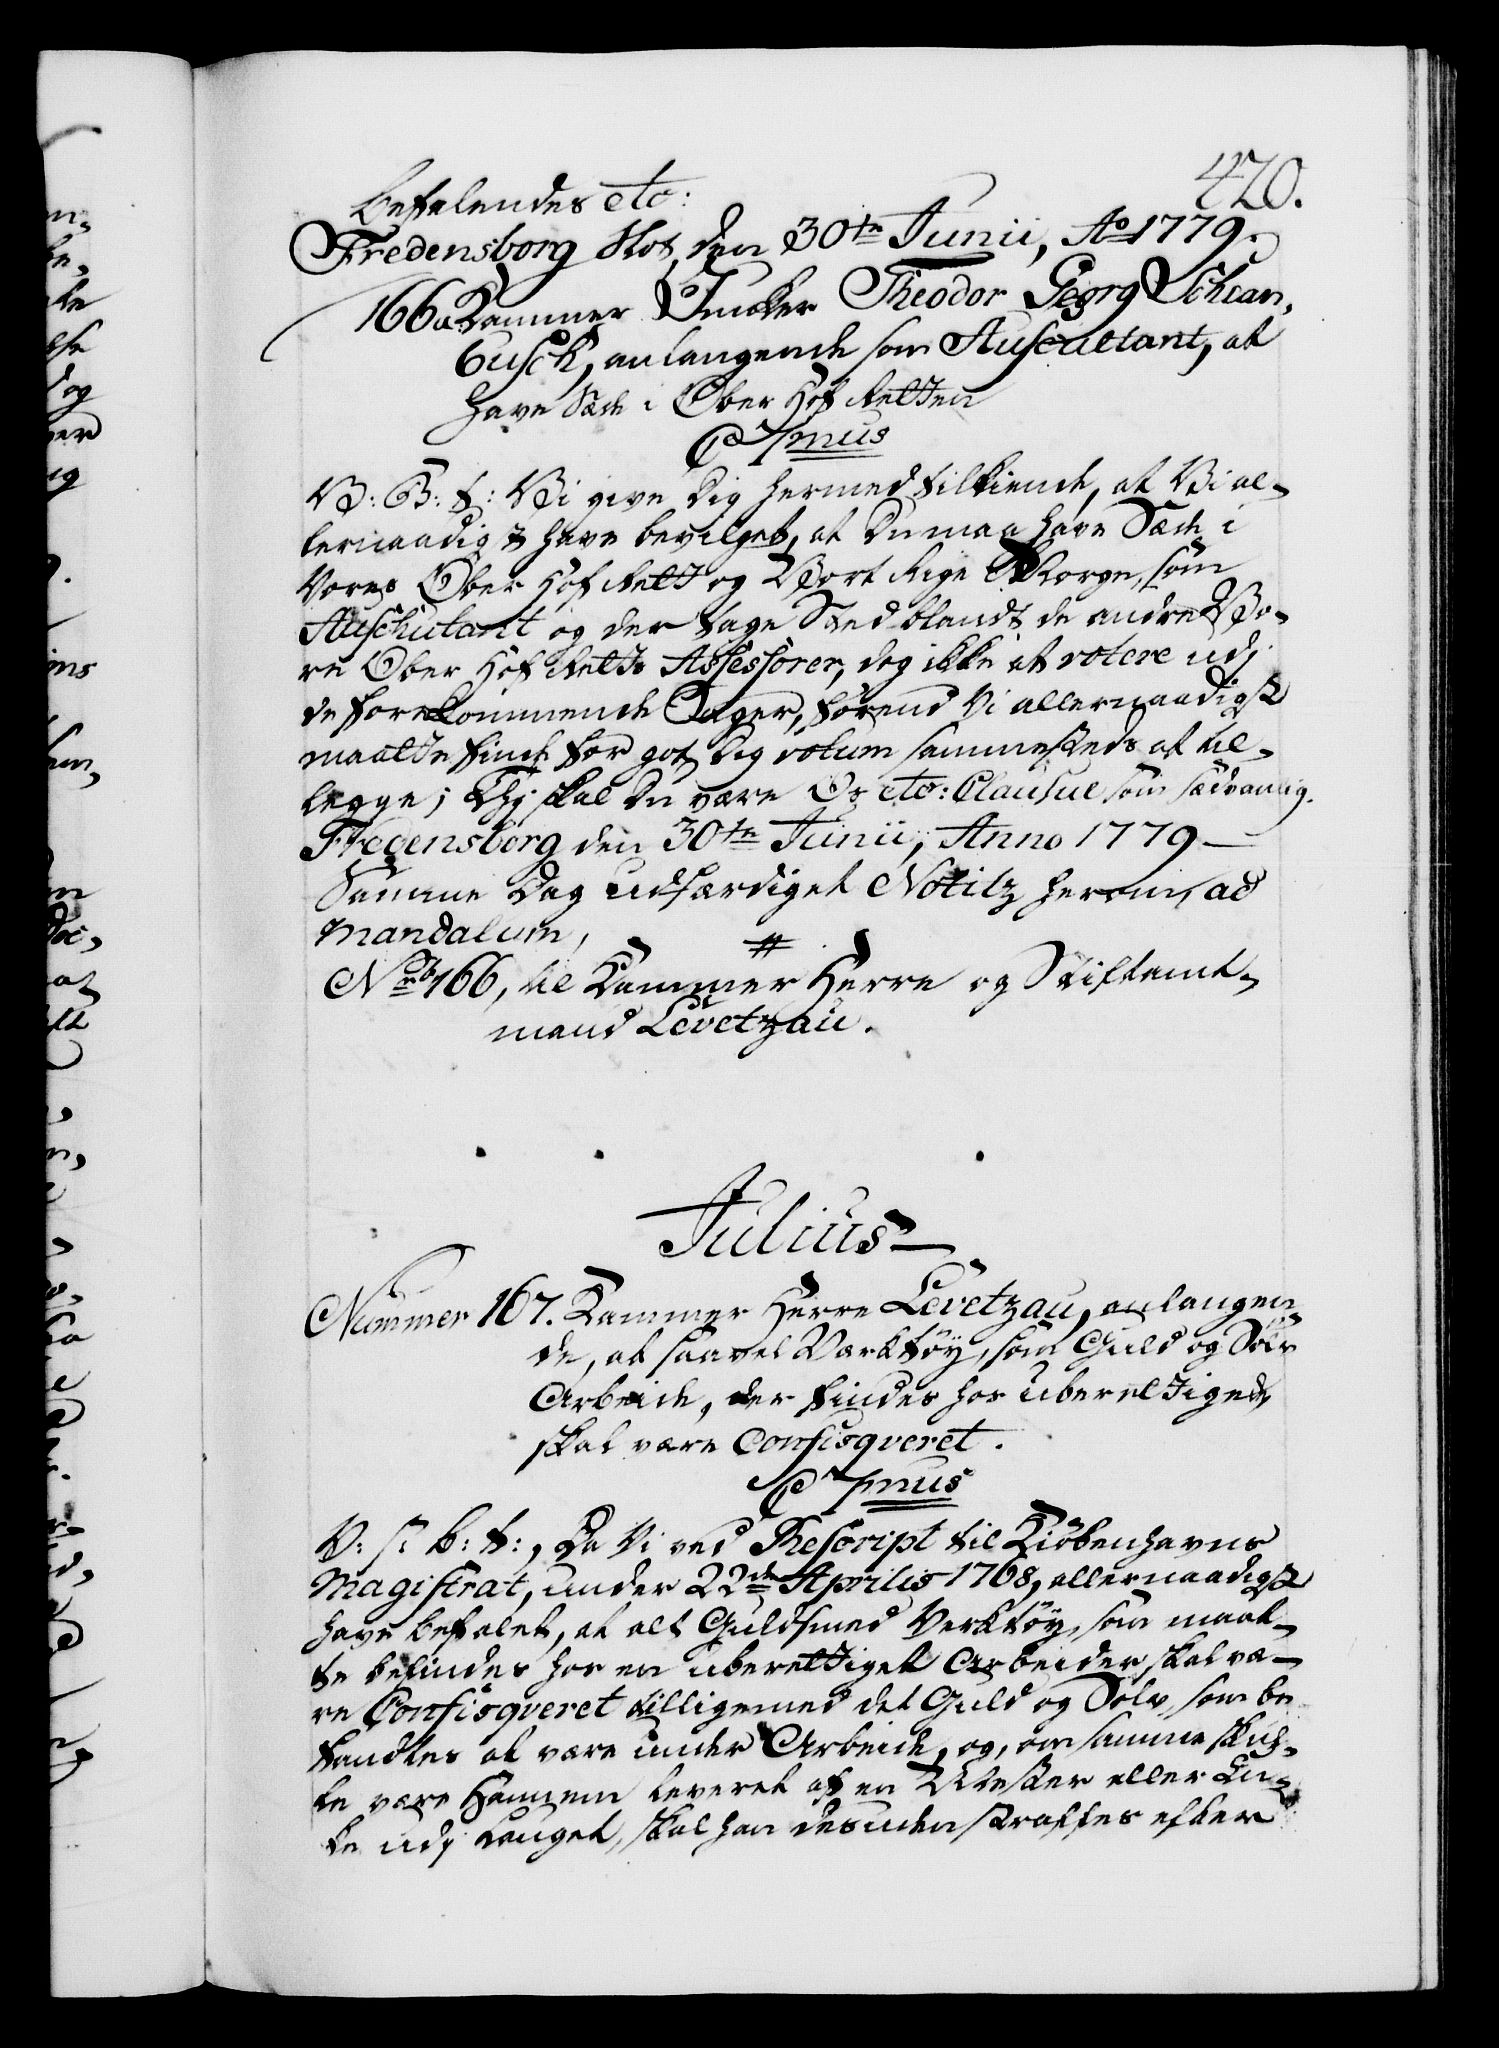 420.
Befalendes etc:
Fredensborg Slot, den 30te Junii, Ao 1779.
166a Kammer Juncker Theodor Georg Schlan,
busch, anlangende som Auscultant, at
have Sæde i Ober Hof Retten
C 7mus
V: G: t: Vi give Dig hermed tilkiende, at Vi al-
lernaadigst have bevilget, at Du maa have Sæde i
Vores Ober Hof Rett og Vort Rige Norge, som
Auschutant og der tage Sted blandt de andre Vo-
re Ober Hof Retts Assessorer, dog ikke at votere udj
de forekommende Sager, førend Vi allernaadigst
maatte finde for got Dig votum sammesteds at til-
legge; Thj skal Du være Os etc: Clausul som sædvanlig.
Fredensborg den 30te Junii, Anno 1779
Samme Dag udfærdiget Notitz herom, ad
Mandatum,
No 166b, til Kammer Herre og Stiftamt-
mand Levetzau.
Julius
Nummer 167. Kammer Herre Levetzau, anlangen-
de, at saavel Værktøy, som Guld og Sølv
Arbeide, der findes hos uberettigede,
skal være Confisqveret.
C 7mus
V: S: b: t:, Da Vi ved Rescript til Kiøbenhavns
Magistrat, under 22de Aprilis 1768, allernaadigst
have befalet, at alt Guldsmed Verktøy, som maat-
te befindes hos en uberettiget Arbeider, skal væ-
re Confisqveret tilligemed det Guld og Sølv, som be-
fandtes at være under Arbeide, og, om samme skul-
le være Hannem leveret af en Mester eller En-
ke udj Lauget, skal han desuden straffes efter